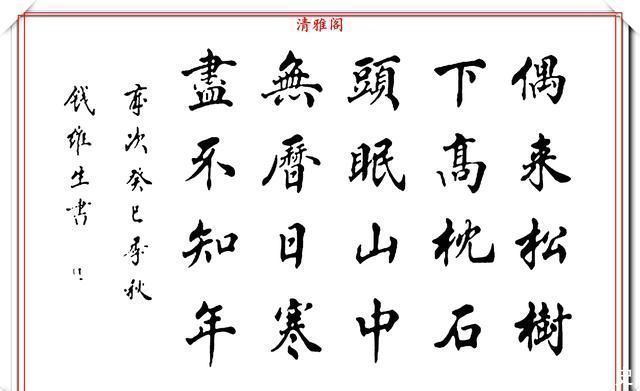 清雅阁
偶来松樹
下髙枕石
頭眠山中
無曆日寒
盡不知年
次癸巳秋
钱維生書